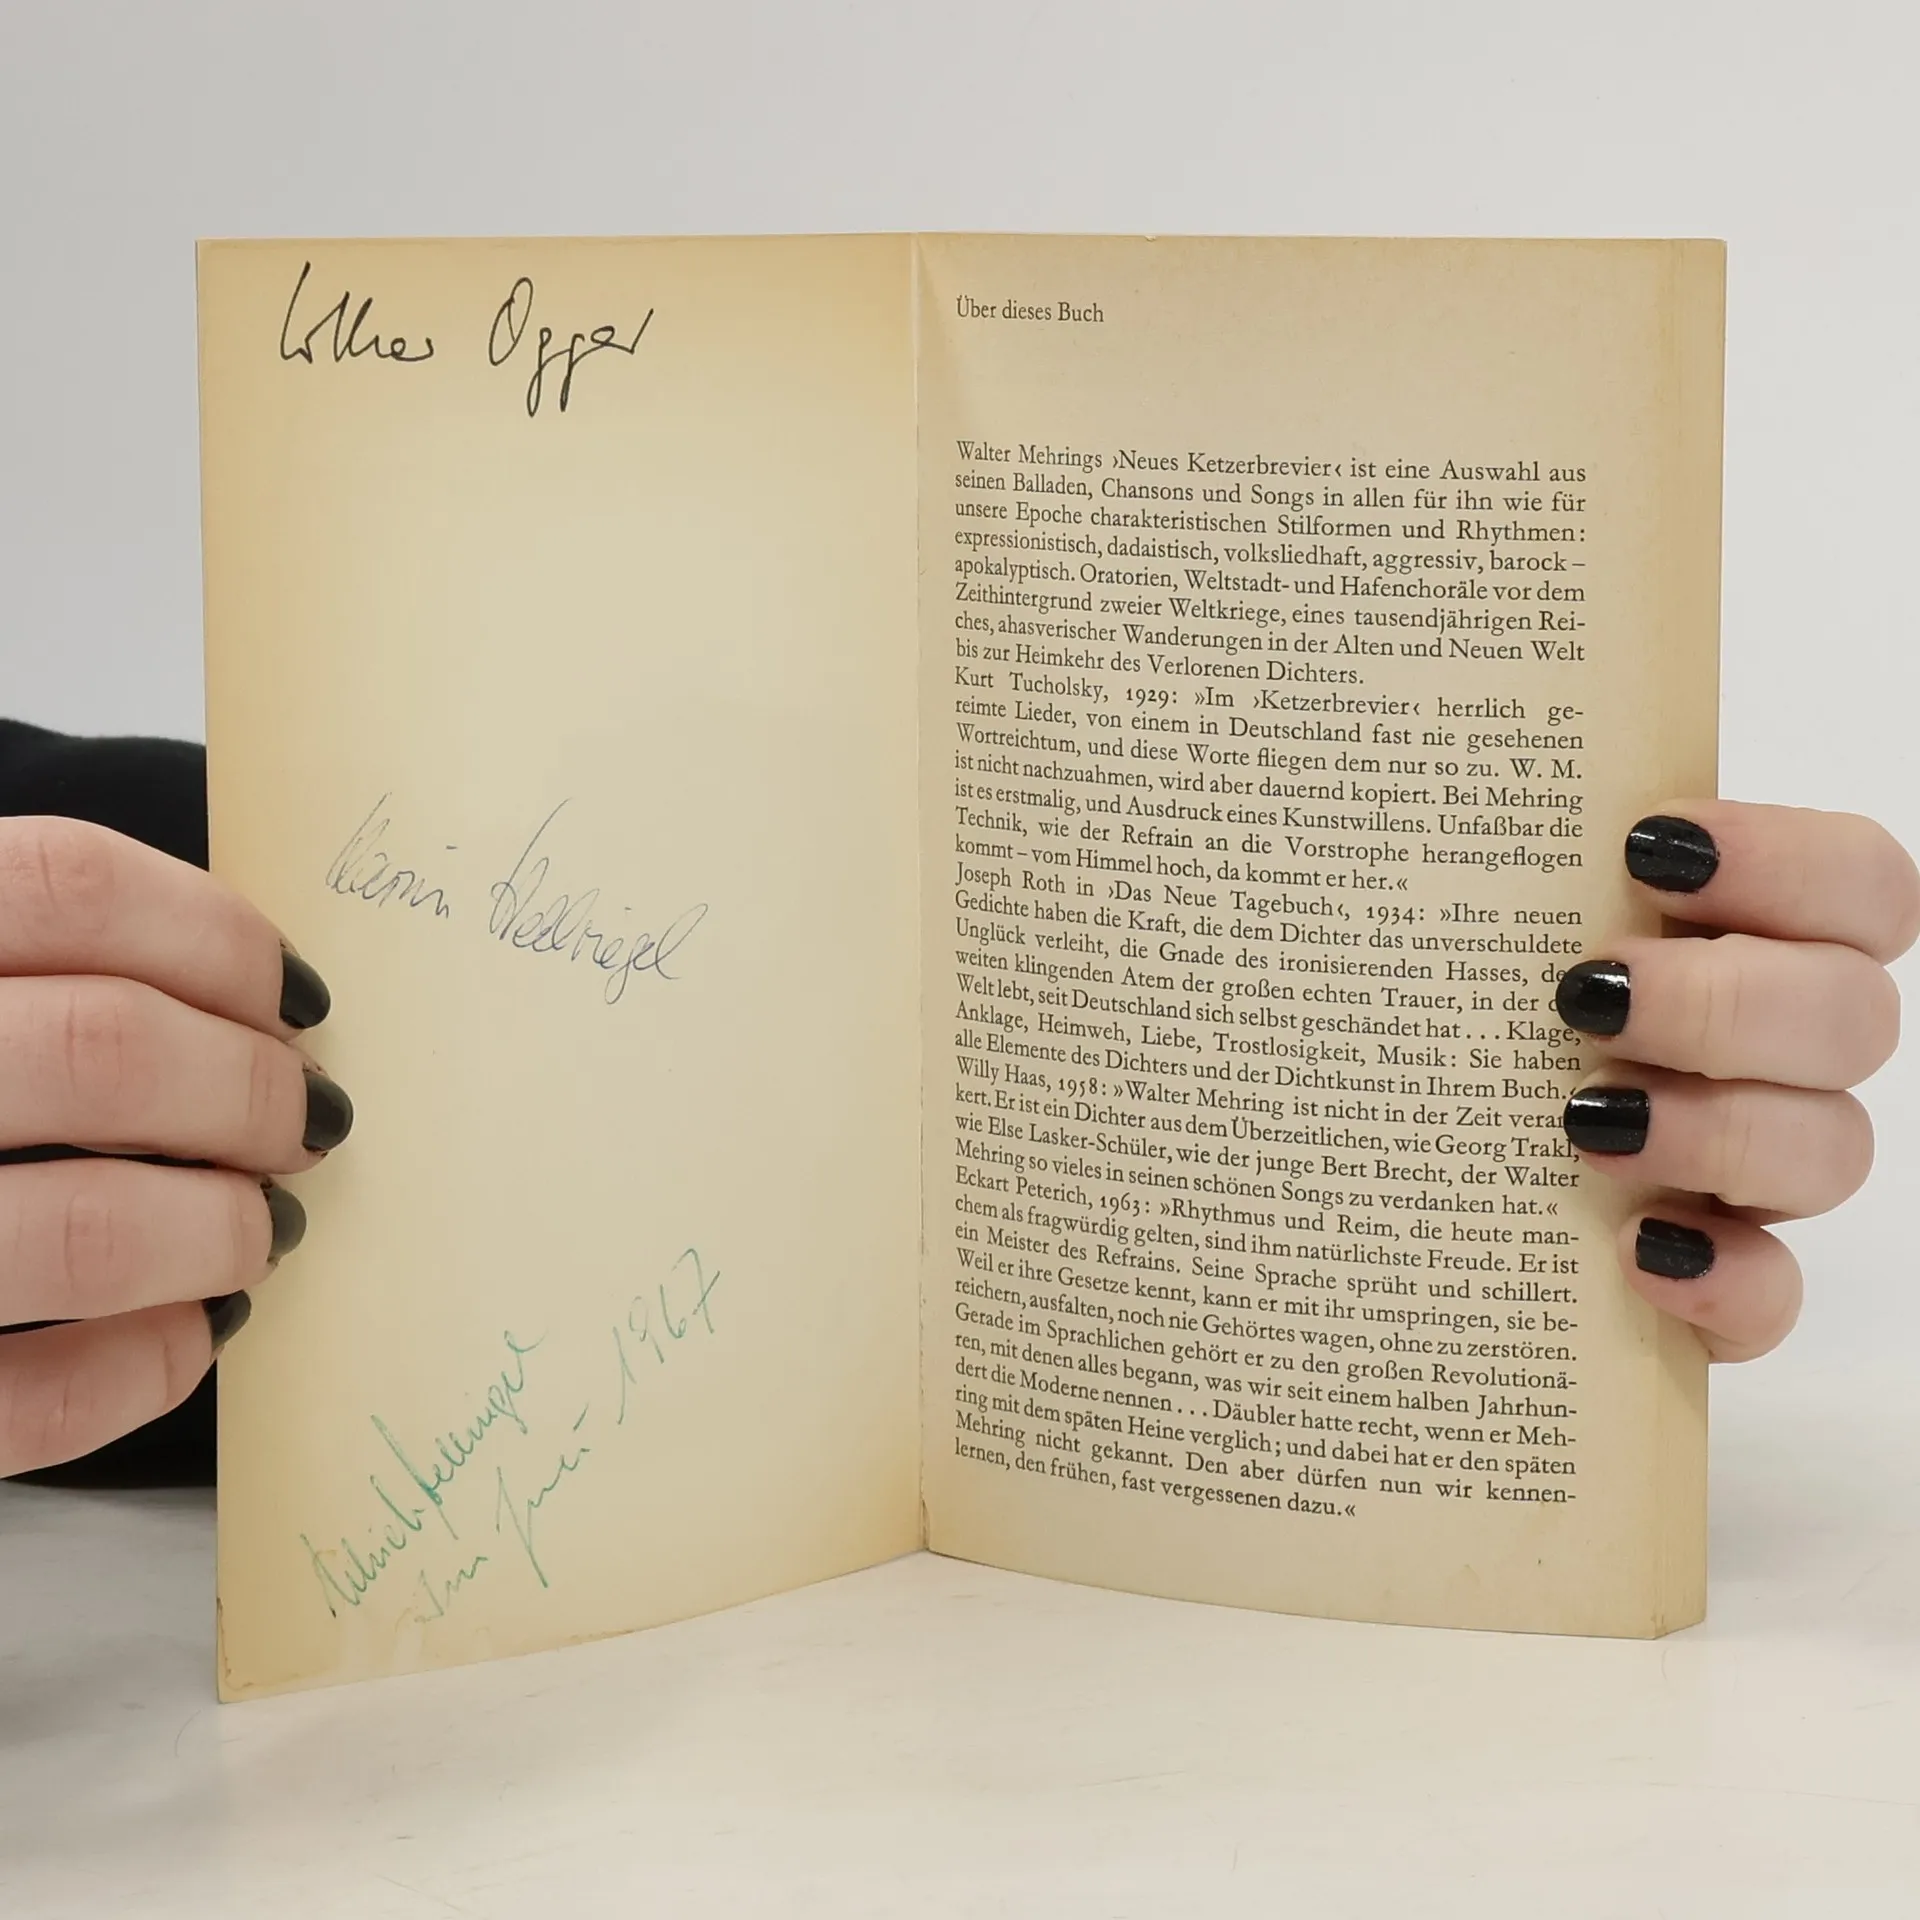 Lothar Ogger
Hellriegel
im Juni 1967
Über dieses Buch
Walter Mehrings ›Neues Ketzerbrevier‹ ist eine Auswahl aus
seinen Balladen, Chansons und Songs in allen für ihn wie für
unsere Epoche charakteristischen Stilformen und Rhythmen:
expressionistisch, dadaistisch, volksliedhaft, aggressiv, barock –
apokalyptisch. Oratorien, Weltstadt- und Hafenchoräle vor dem
Zeithintergrund zweier Weltkriege, eines tausendjährigen Rei-
ches, ahasverischer Wanderungen in der Alten und Neuen Welt
bis zur Heimkehr des Verlorenen Dichters.
Kurt Tucholsky, 1929: »Im ›Ketzerbrevier‹ herrlich ge-
reimte Lieder, von einem in Deutschland fast nie gesehenen
Wortreichtum, und diese Worte fliegen dem nur so zu. W. M.
ist nicht nachzuahmen, wird aber dauernd kopiert. Bei Mehring
ist es erstmalig, und Ausdruck eines Kunstwillens. Unfaßbar die
Technik, wie der Refrain an die Vorstrophe herangeflogen
kommt – vom Himmel hoch, da kommt er her.«
Joseph Roth in ›Das Neue Tagebuch‹, 1934: »Ihre neuen
Gedichte haben die Kraft, die dem Dichter das unverschuldete
Unglück verleiht, die Gnade des ironisierenden Hasses, de
weiten klingenden Atem der großen echten Trauer, in der
Welt lebt, seit Deutschland sich selbst geschändet hat . . . Klage,
Anklage, Heimweh, Liebe, Trostlosigkeit, Musik: Sie haben
alle Elemente des Dichters und der Dichtkunst in Ihrem Buch.«
Willy Haas, 1958: »Walter Mehring ist nicht in der Zeit veran
kert. Er ist ein Dichter aus dem Überzeitlichen, wie Georg Trakl,
wie Else Lasker-Schüler, wie der junge Bert Brecht, der Walter
Mehring so vieles in seinen schönen Songs zu verdanken hat.«
Eckart Peterich, 1963: »Rhythmus und Reim, die heute man-
chem als fragwürdig gelten, sind ihm natürlichste Freude. Er ist
ein Meister des Refrains. Seine Sprache sprüht und schillert.
Weil er ihre Gesetze kennt, kann er mit ihr umspringen, sie be-
reichern, ausfalten, noch nie Gehörtes wagen, ohne zu zerstören.
Gerade im Sprachlichen gehört er zu den großen Revolutionä-
ren, mit denen alles begann, was wir seit einem halben Jahrhun-
dert die Moderne nennen . . . Däubler hatte recht, wenn er Meh-
ring mit dem späten Heine verglich; und dabei hat er den späten
Mehring nicht gekannt. Den aber dürfen nun wir kennen-
lernen, den frühen, fast vergessenen dazu.«